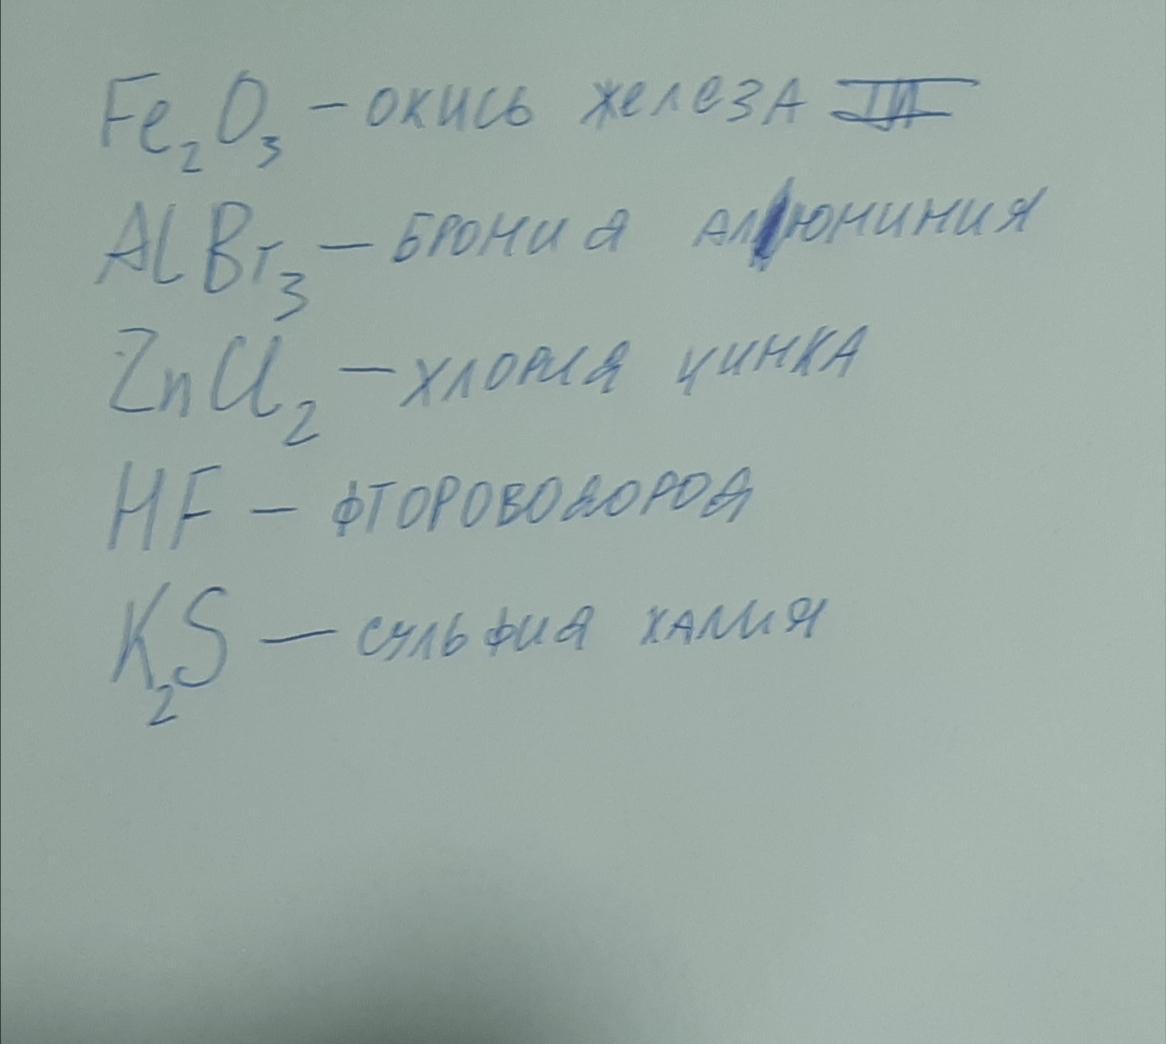 Fe₂O₃ – окись железа III
AlBr₃ – бромид алюминия
ZnCl₂ – хлорид цинка
HF – фтороводород
K₂S – сульфид калия